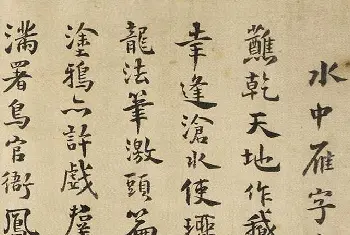 水中雁字
蘸乾天地作
幸逢滄水使
龍法筆激頭
塗鴉亦計戲
滿署鳥官衙鳳